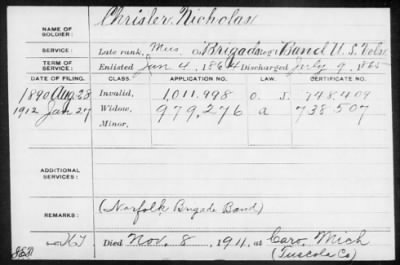 NAME OF SOLDIER: Chrisler, Nicholas
SERVICE: Late rank, Mus Co. Brigade Reg't Band U.S. Vols.
TERM OF SERVICE: Enlisted Jan 4, 1864 Discharged July 9, 1865
DATE OF FILING. CLASS. APPLICATION NO. LAW. CERTIFICATE NO.
1890 Aug 28 Invalid, 1,011.998 O.S. 748.409
1912 Jan 27 Widow, 979,276 a 738.507
Minor,
ADDITIONAL SERVICES:
REMARKS: (Norfolk Brigade Band)
Died Nov. 8, 1911, at Caro, Mich
(Tuscola Co)